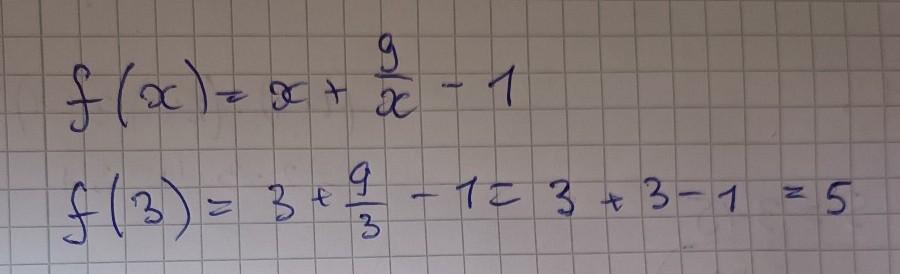 f(x) = x + 9/x - 1
f(3) = 3 + 9/3 - 1 = 3 + 3 - 1 = 5